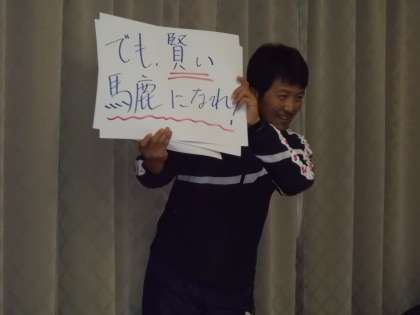 でも、賢い
馬鹿になれ!